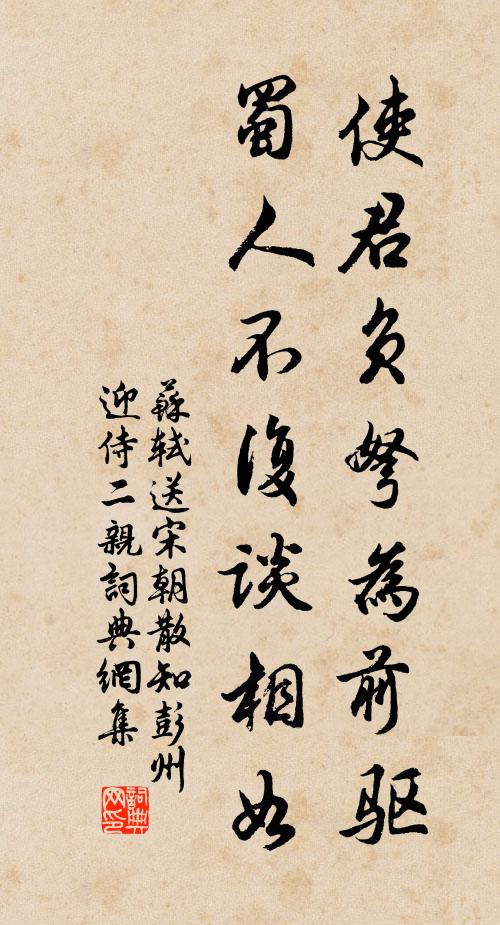 使君负弩為前驱
蜀人不復談相如
蘇軾送宋朝散知彭州
迎侍二親詞典網集
詞典
网印